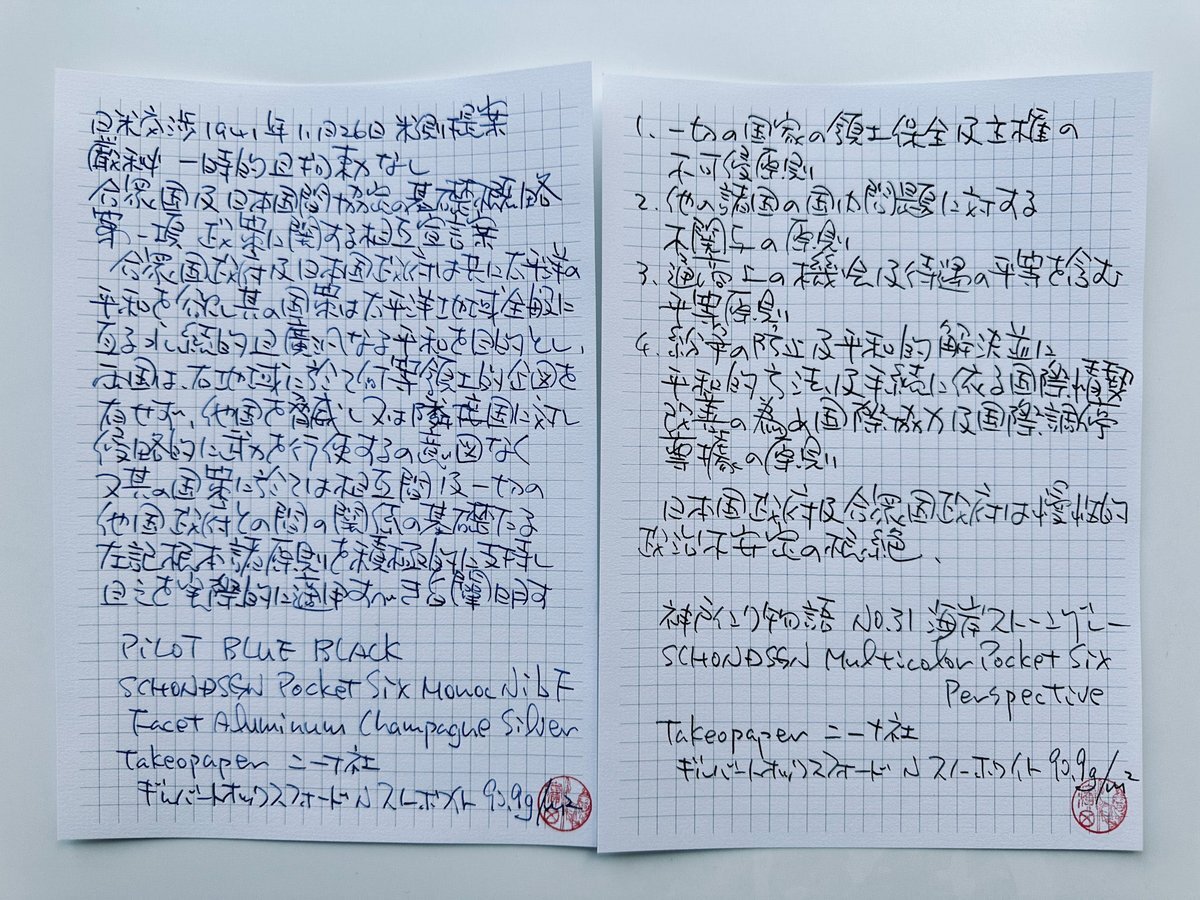 日米交渉1941年11月26日米側提案
厳秘 一時的且拘束力なし
合衆国及日本国間協定の基礎概略
第一項 政策に関する相互宣言案
合衆国政府及日本国政府は共に太平洋の
平和を欲し其の国策は太平洋地域全般に
亘る永続的且廣汎なる平和を目的とし、
両国は右地域に於て何等領土的企図を
有せず、他国を脅威し又は隣接国に対し
侵略的に武力を行使するの意図なく
又其の国策に於ては相互間及一切の
他国政府との間の関係の基礎たる
左記根本諸原則を積極的に支持し
且之を実際的に適用すべき旨闡明す
PILOT BLUE BLACK
SCHONDSGN Pocket Six Monoc Nib F
Facet Aluminum Champagne Silver
Takeopaper ニーナ社
ギルバートオックスフォードN スノーホワイト 90.9g/m2
1. 一切の国家の領土保全及主権の
不可侵原則
2. 他の諸国の国内問題に対する
不関与の原則
3. 通商上の機会及待遇の平等を含む
平等原則
4. 紛争の防止及平和的解決並に
平和的方法及手続に依る国際情勢
改善の為め国際協力及国際調停
尊據の原則
日本国政府及合衆国政府は慢性的
政治不安定の根絶、
神戸インク物語 NO.31 海岸ストーングレー
SCHONDSGN Multicolor Pocket Six
Perspective
Takeopaper ニーナ社
ギルバートオックスフォードN スノーホワイト 90.9g/m2